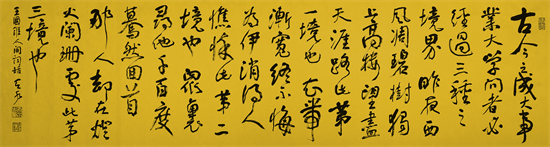 古今之成大事
業大學問者必
經過三種之
境界 昨夜西
風凋碧樹獨
上高樓望盡
天涯路此第
一境也 衣帶
漸寬終不悔
為伊消得人
憔悴此第二
境也 眾裏
尋他千百度
驀然回首
那人却在燈
火闌珊處此第
三境也
王國維人間詞話